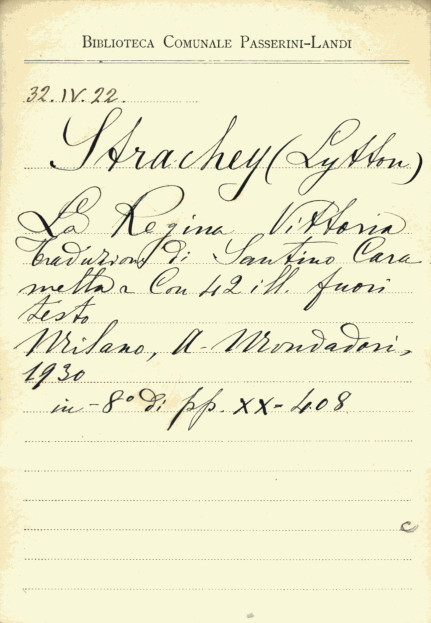 BIBLIOTECA COMUNALE PASSERINI-LANDI
32.IV.22.
Strachey (Lytton)
La Regina Vittoria
Traduzione di Santino Cara
mella - Con 42 ill. fuori
testo
Milano, A. Mondadori,
1930
in-8° di pp. XX-408